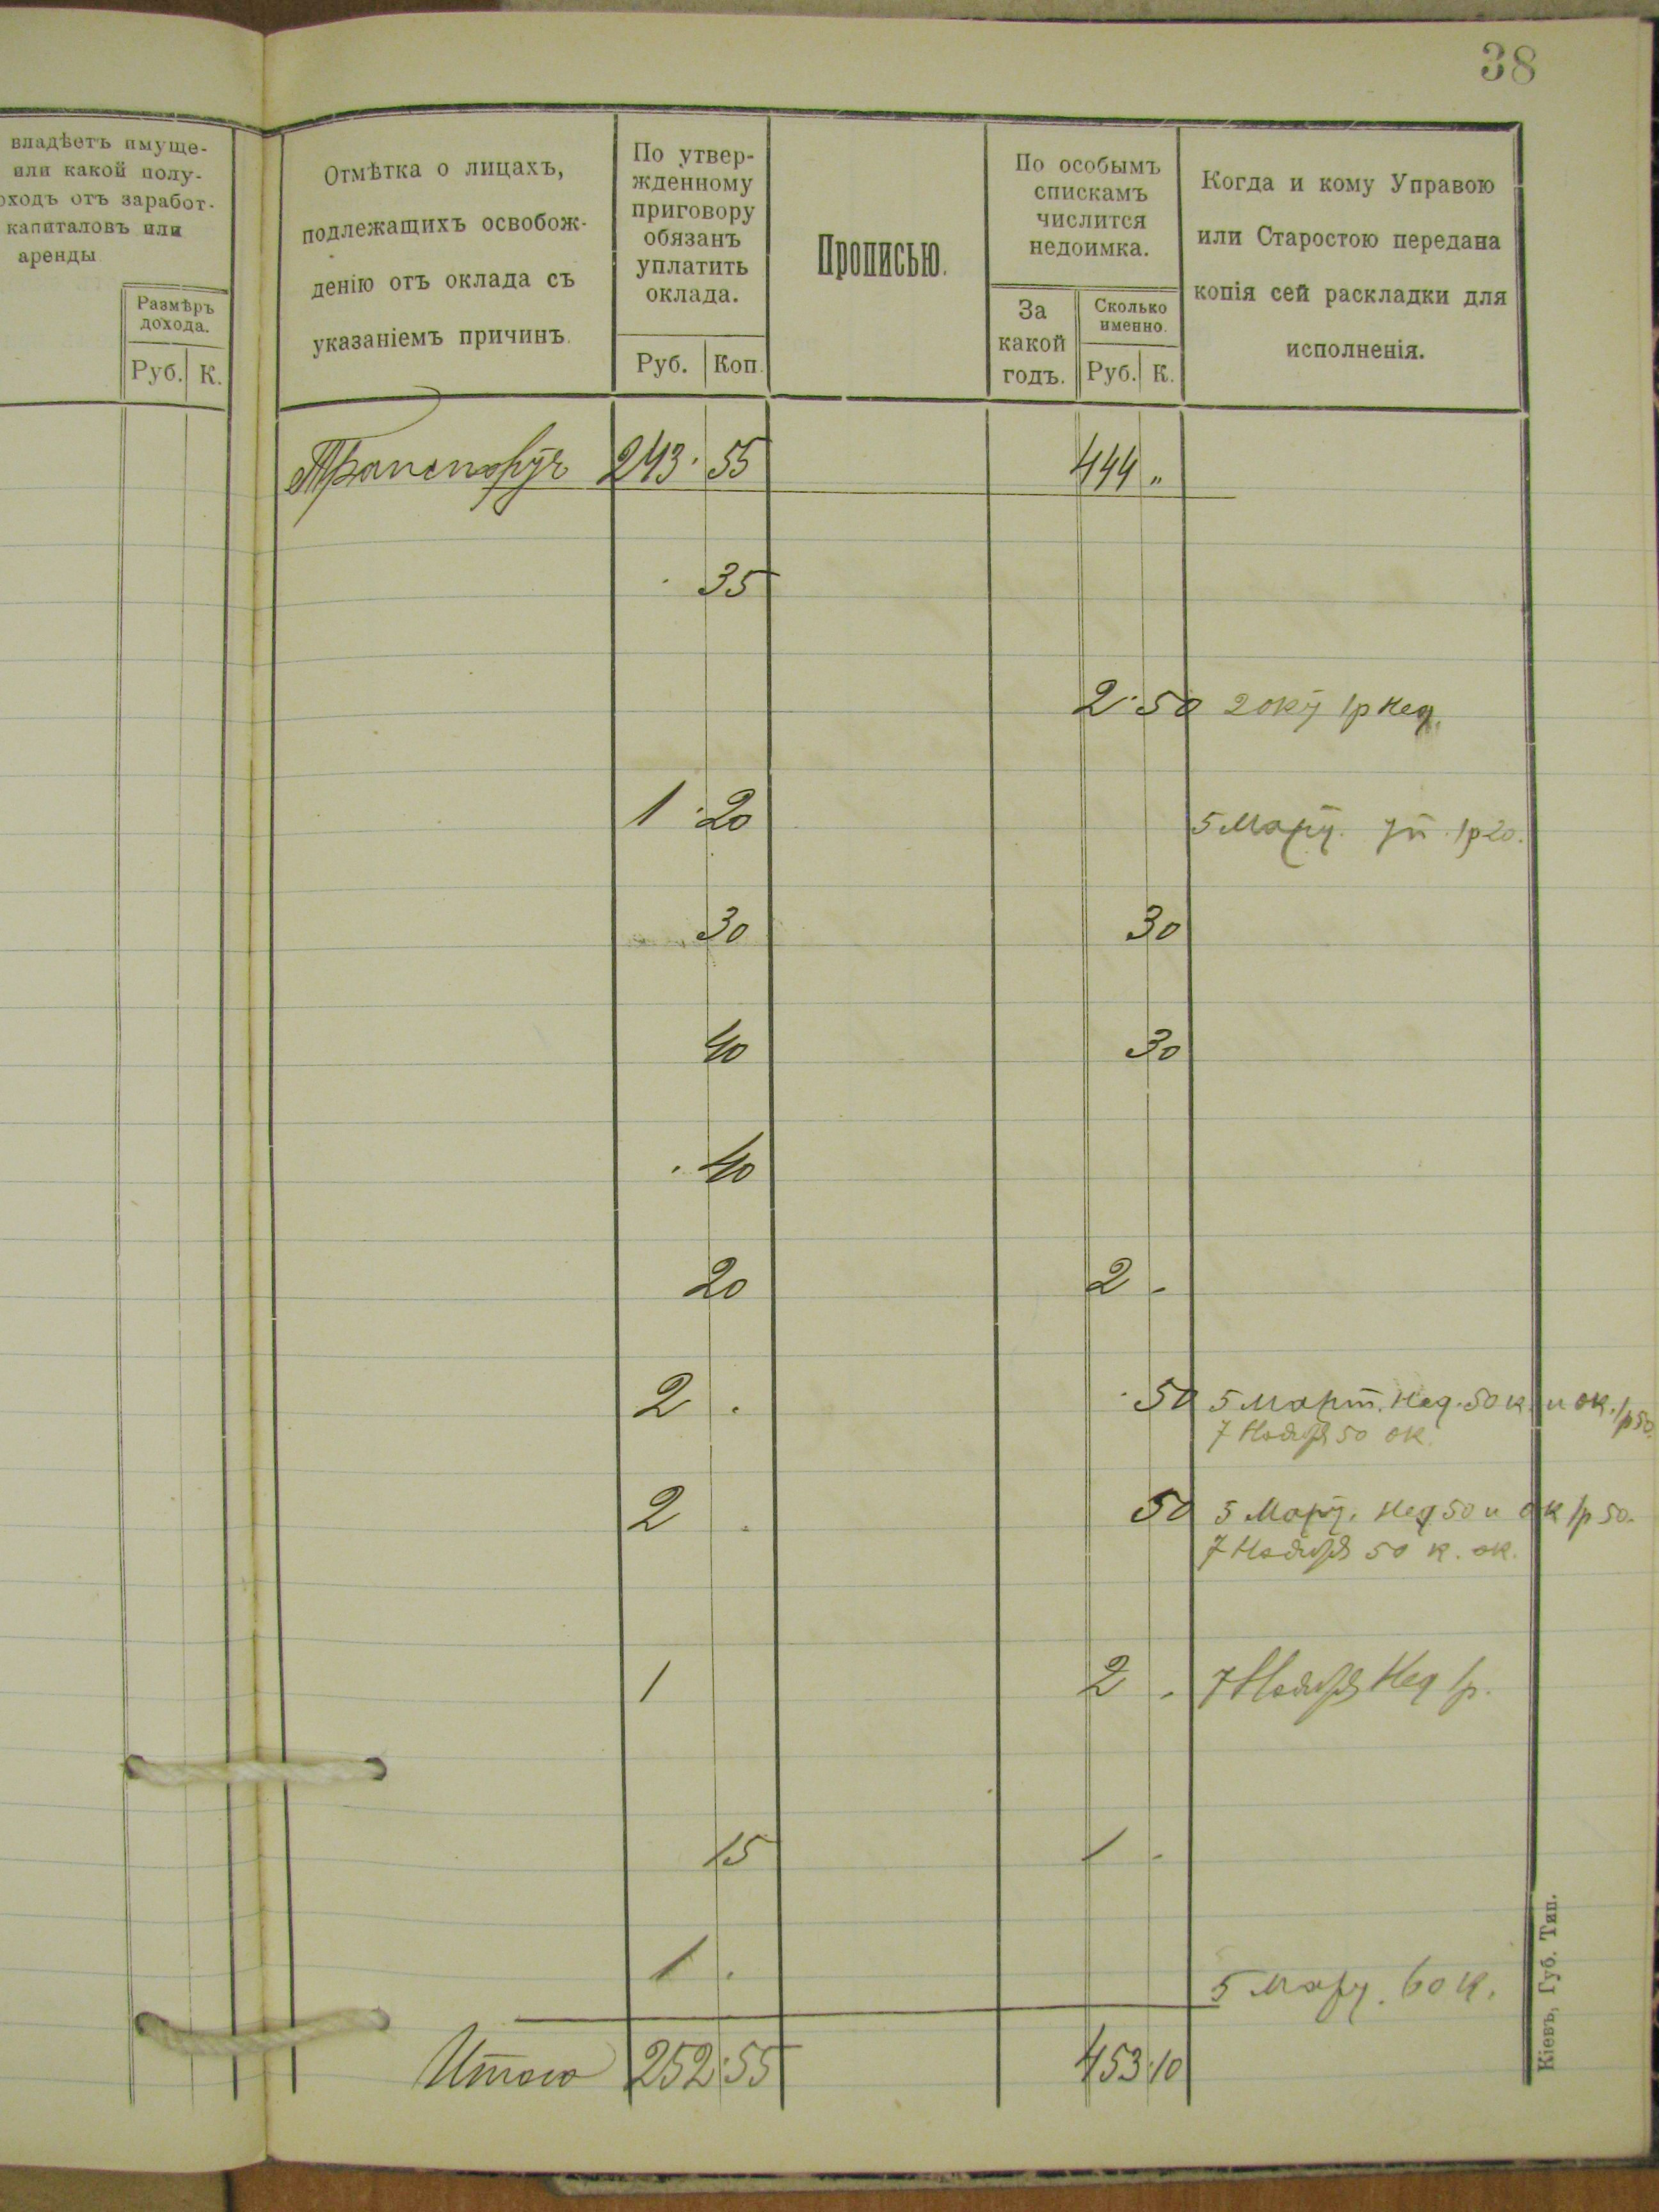 38
владѣетъ имуще-
или какой полу-
оходъ отъ заработ-
капиталовъ или
аренды
Размѣръ
дохода.
Руб. К.
Отмѣтка о лицахъ,
подлежащихъ освобож-
денію отъ оклада съ
указаніемъ причинъ.
По утвер-
жденному
приговору
обязанъ
уплатить
оклада.
Руб. Коп.
Прописью.
По особымъ
спискамъ
числится
недоимка.
За
какой
годъ.
Сколько
именно.
Руб. К.
Когда и кому Управою
или Старостою передана
копія сей раскладки для
исполненія.
Транспортъ 243 · 55 444 „
· 35
2 · 50 2 окт 1р нед.
1 · 20 5 Март. уп. 1р 20.
30 30
40 30
· 40
20 2 -
2 . · 50 5 Март. Нед. 50 к. и ок. 1р 50.
7 Ноября 50 ок.
2 . 50 5 Март. Нед 50 и ок 1р 50.
7 Ноября 50 к. ок.
1 2 . 7 Ноября Нед 1р.
15 1 -
1 . 5 Март. 60 к.
Итого 252 · 55 453 · 10
Кіевъ, Губ. Тип.